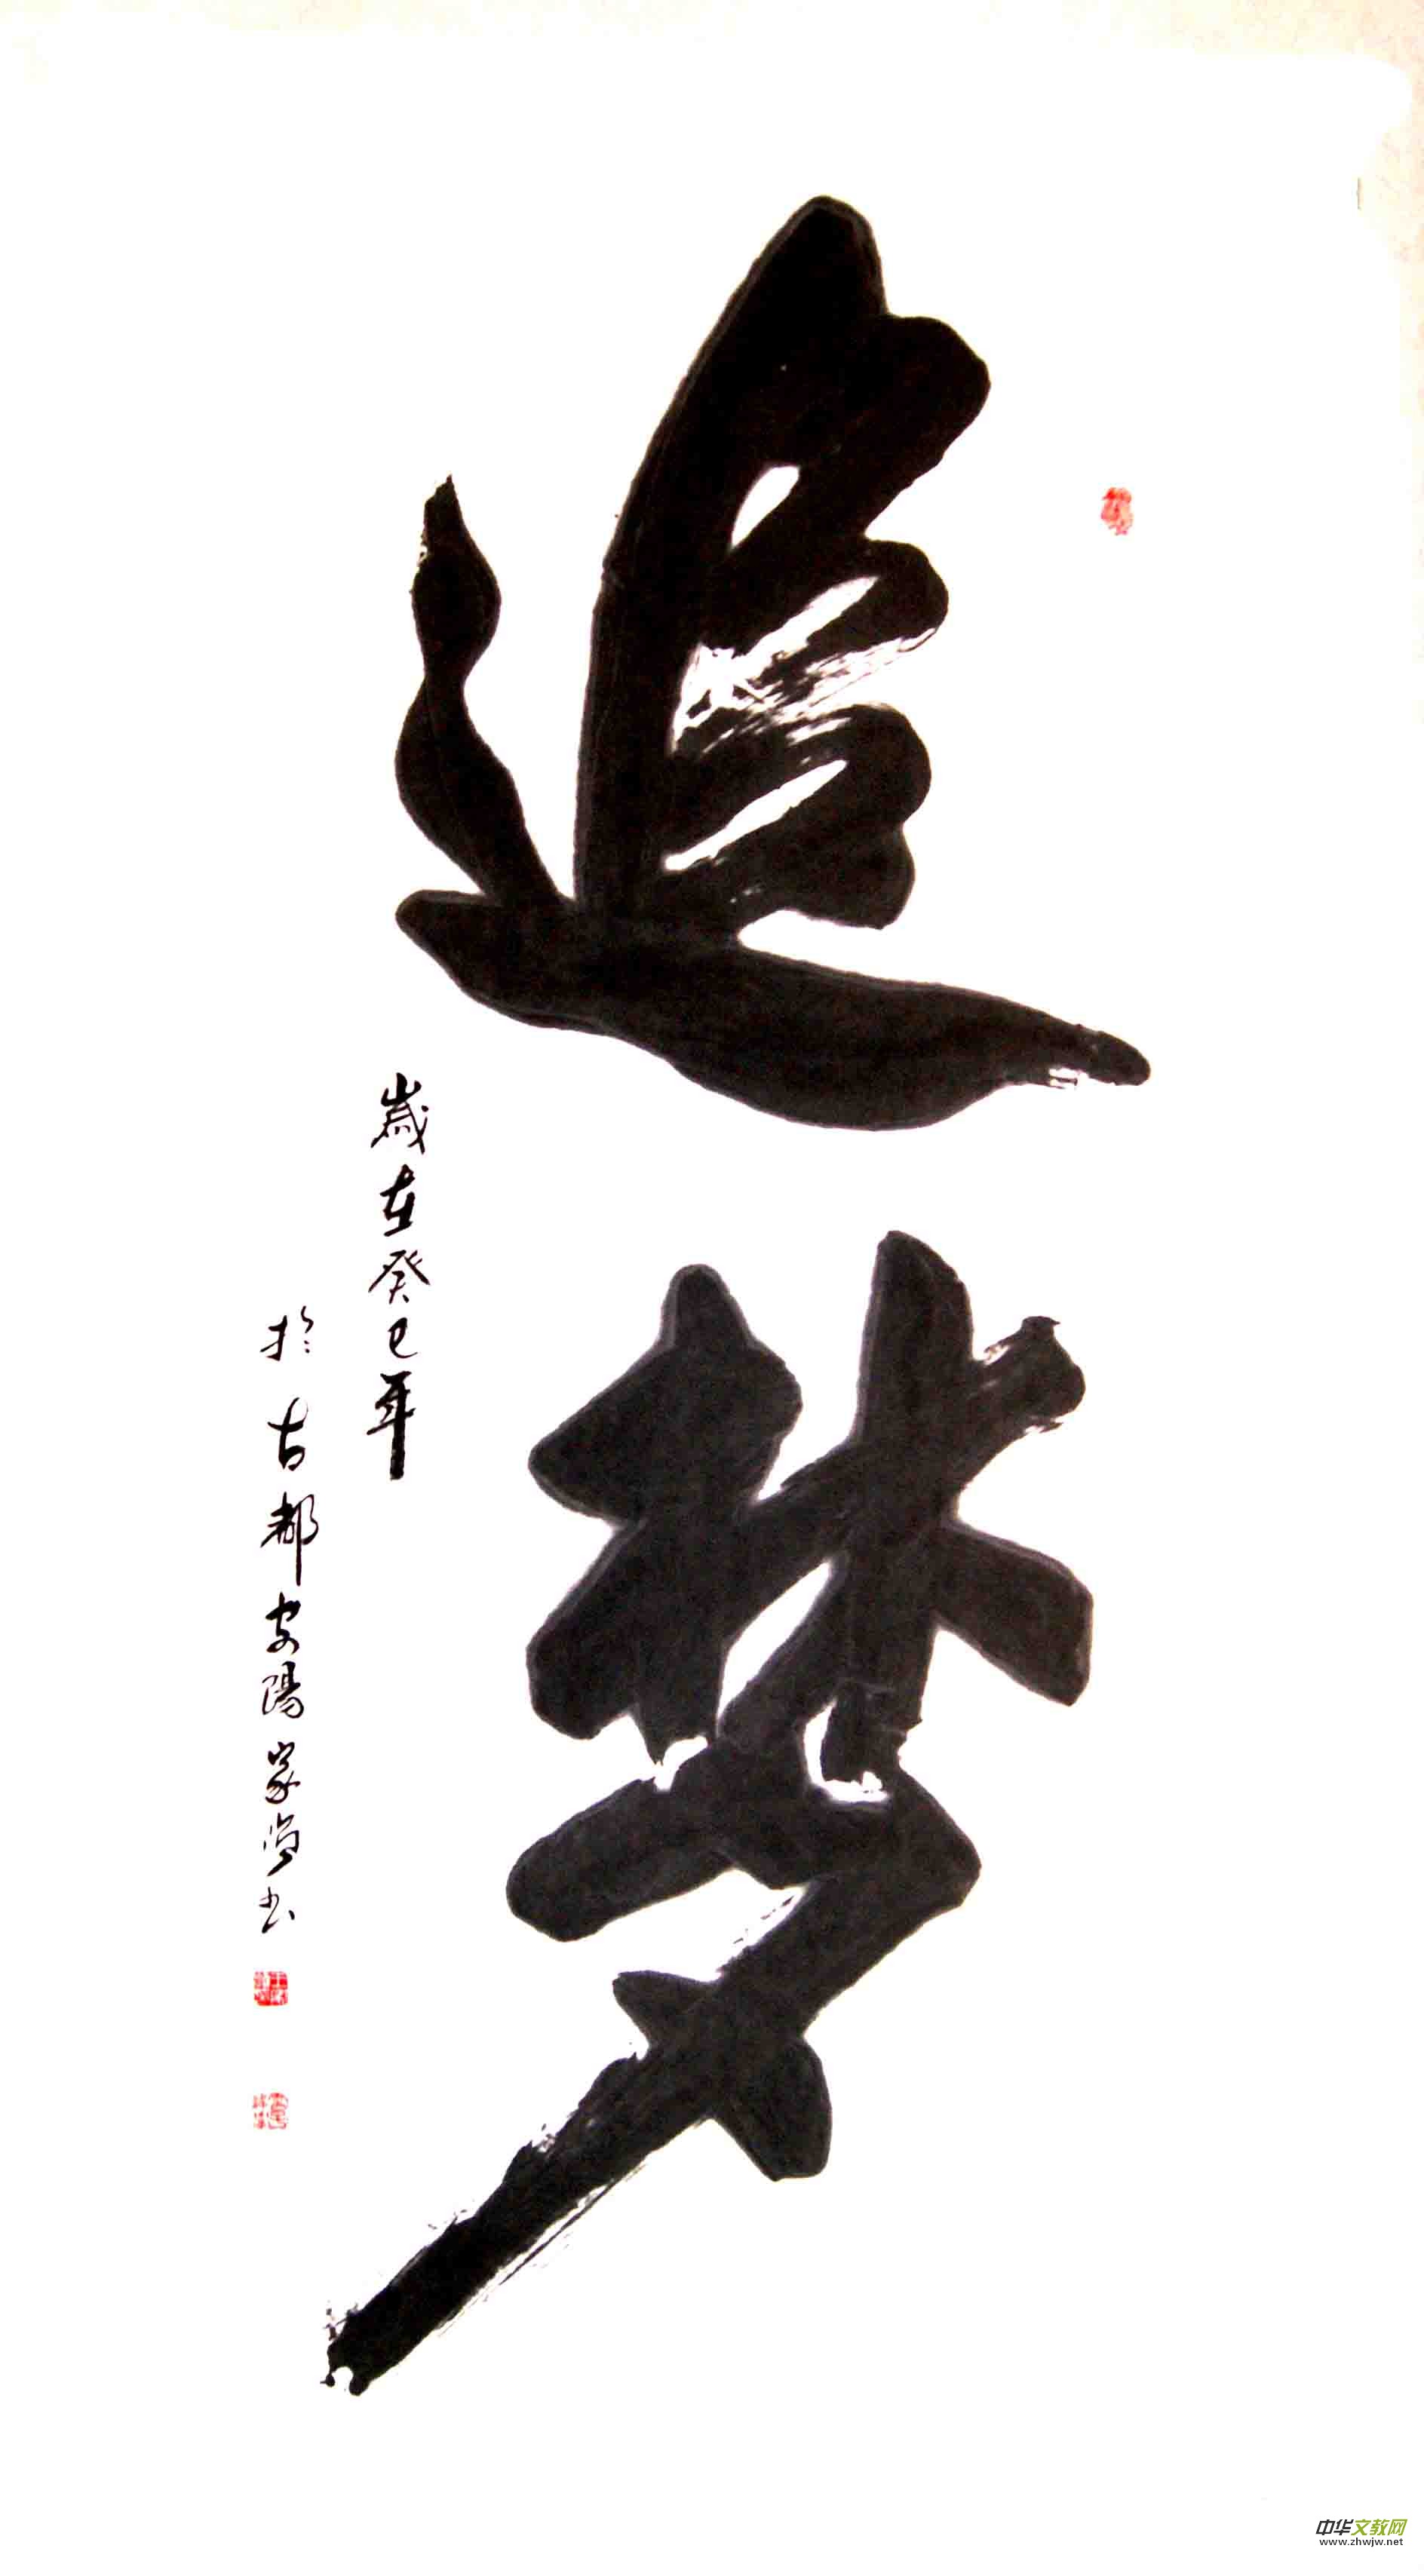 追梦
歲在癸巳年
於古都安陽家学书
中华文教网
www.zhwjw.net